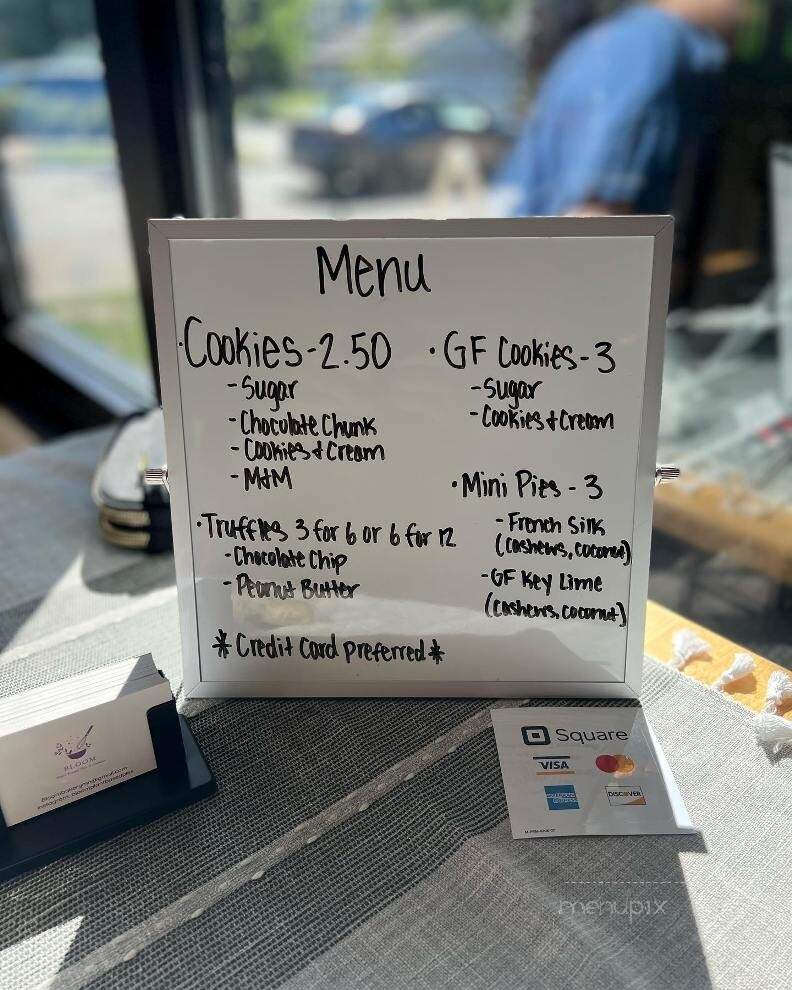 Menu
·Cookies-2.50
-Sugar
-Chocolate Chunk
-Cookies & Cream
-M&M
·Truffles 3 for 6 or 6 for 12
-Chocolate Chip
-Peanut Butter
·GF Cookies-3
-Sugar
-Cookies & Cream
·Mini Pies - 3
-French Silk
(cashews, coconut)
-GF Key Lime
(cashews, coconut)
*Credit Card preferred*
BLOOM
Square
VISA
DISCOVER
menupix